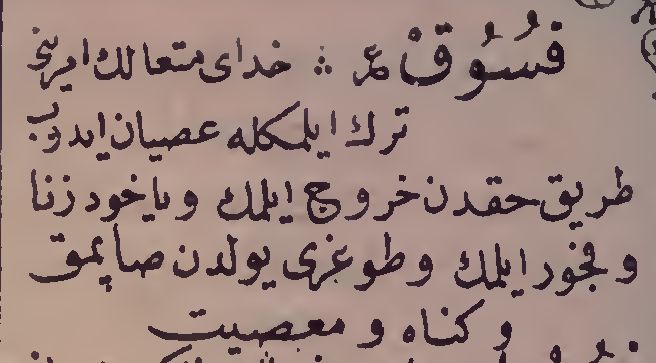 فُسُوقْ عر ؞ خدای متعالك امرینی
ترك ایلمكله عصیان ایدوب
طریق حقدن خروج ایلمك ویاخود زنا
و فجور ایلمك وطوغری یولدن صاپمق
و كناه و معصیت